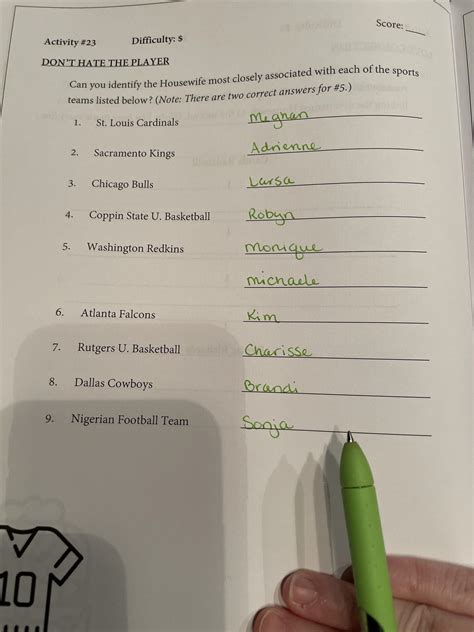 Score: ___
Activity #23 Difficulty: $
DON'T HATE THE PLAYER
Can you identify the Housewife most closely associated with each of the sports
teams listed below? (Note: There are two correct answers for #5.)
1. St. Louis Cardinals Meghan
2. Sacramento Kings Adrienne
3. Chicago Bulls Larsa
4. Coppin State U. Basketball Robyn
5. Washington Redkins Monique
michaele
6. Atlanta Falcons Kim
7. Rutgers U. Basketball Charisse
8. Dallas Cowboys Brandi
9. Nigerian Football Team Sonja
10